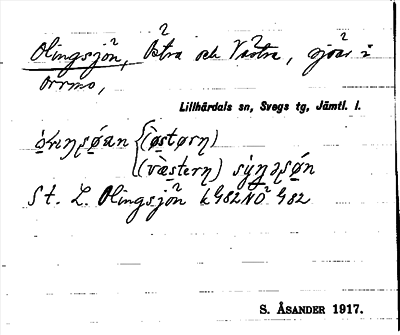 Olingsjön, Östra och Västra, sjöar i
Orrmo,
Lillhärdals sn, Svegs tg, Jämtl. l.
(østørn)
(væstern)
St. L. Olingsjön k G82 NO G82
S. ÅSANDER 1917.